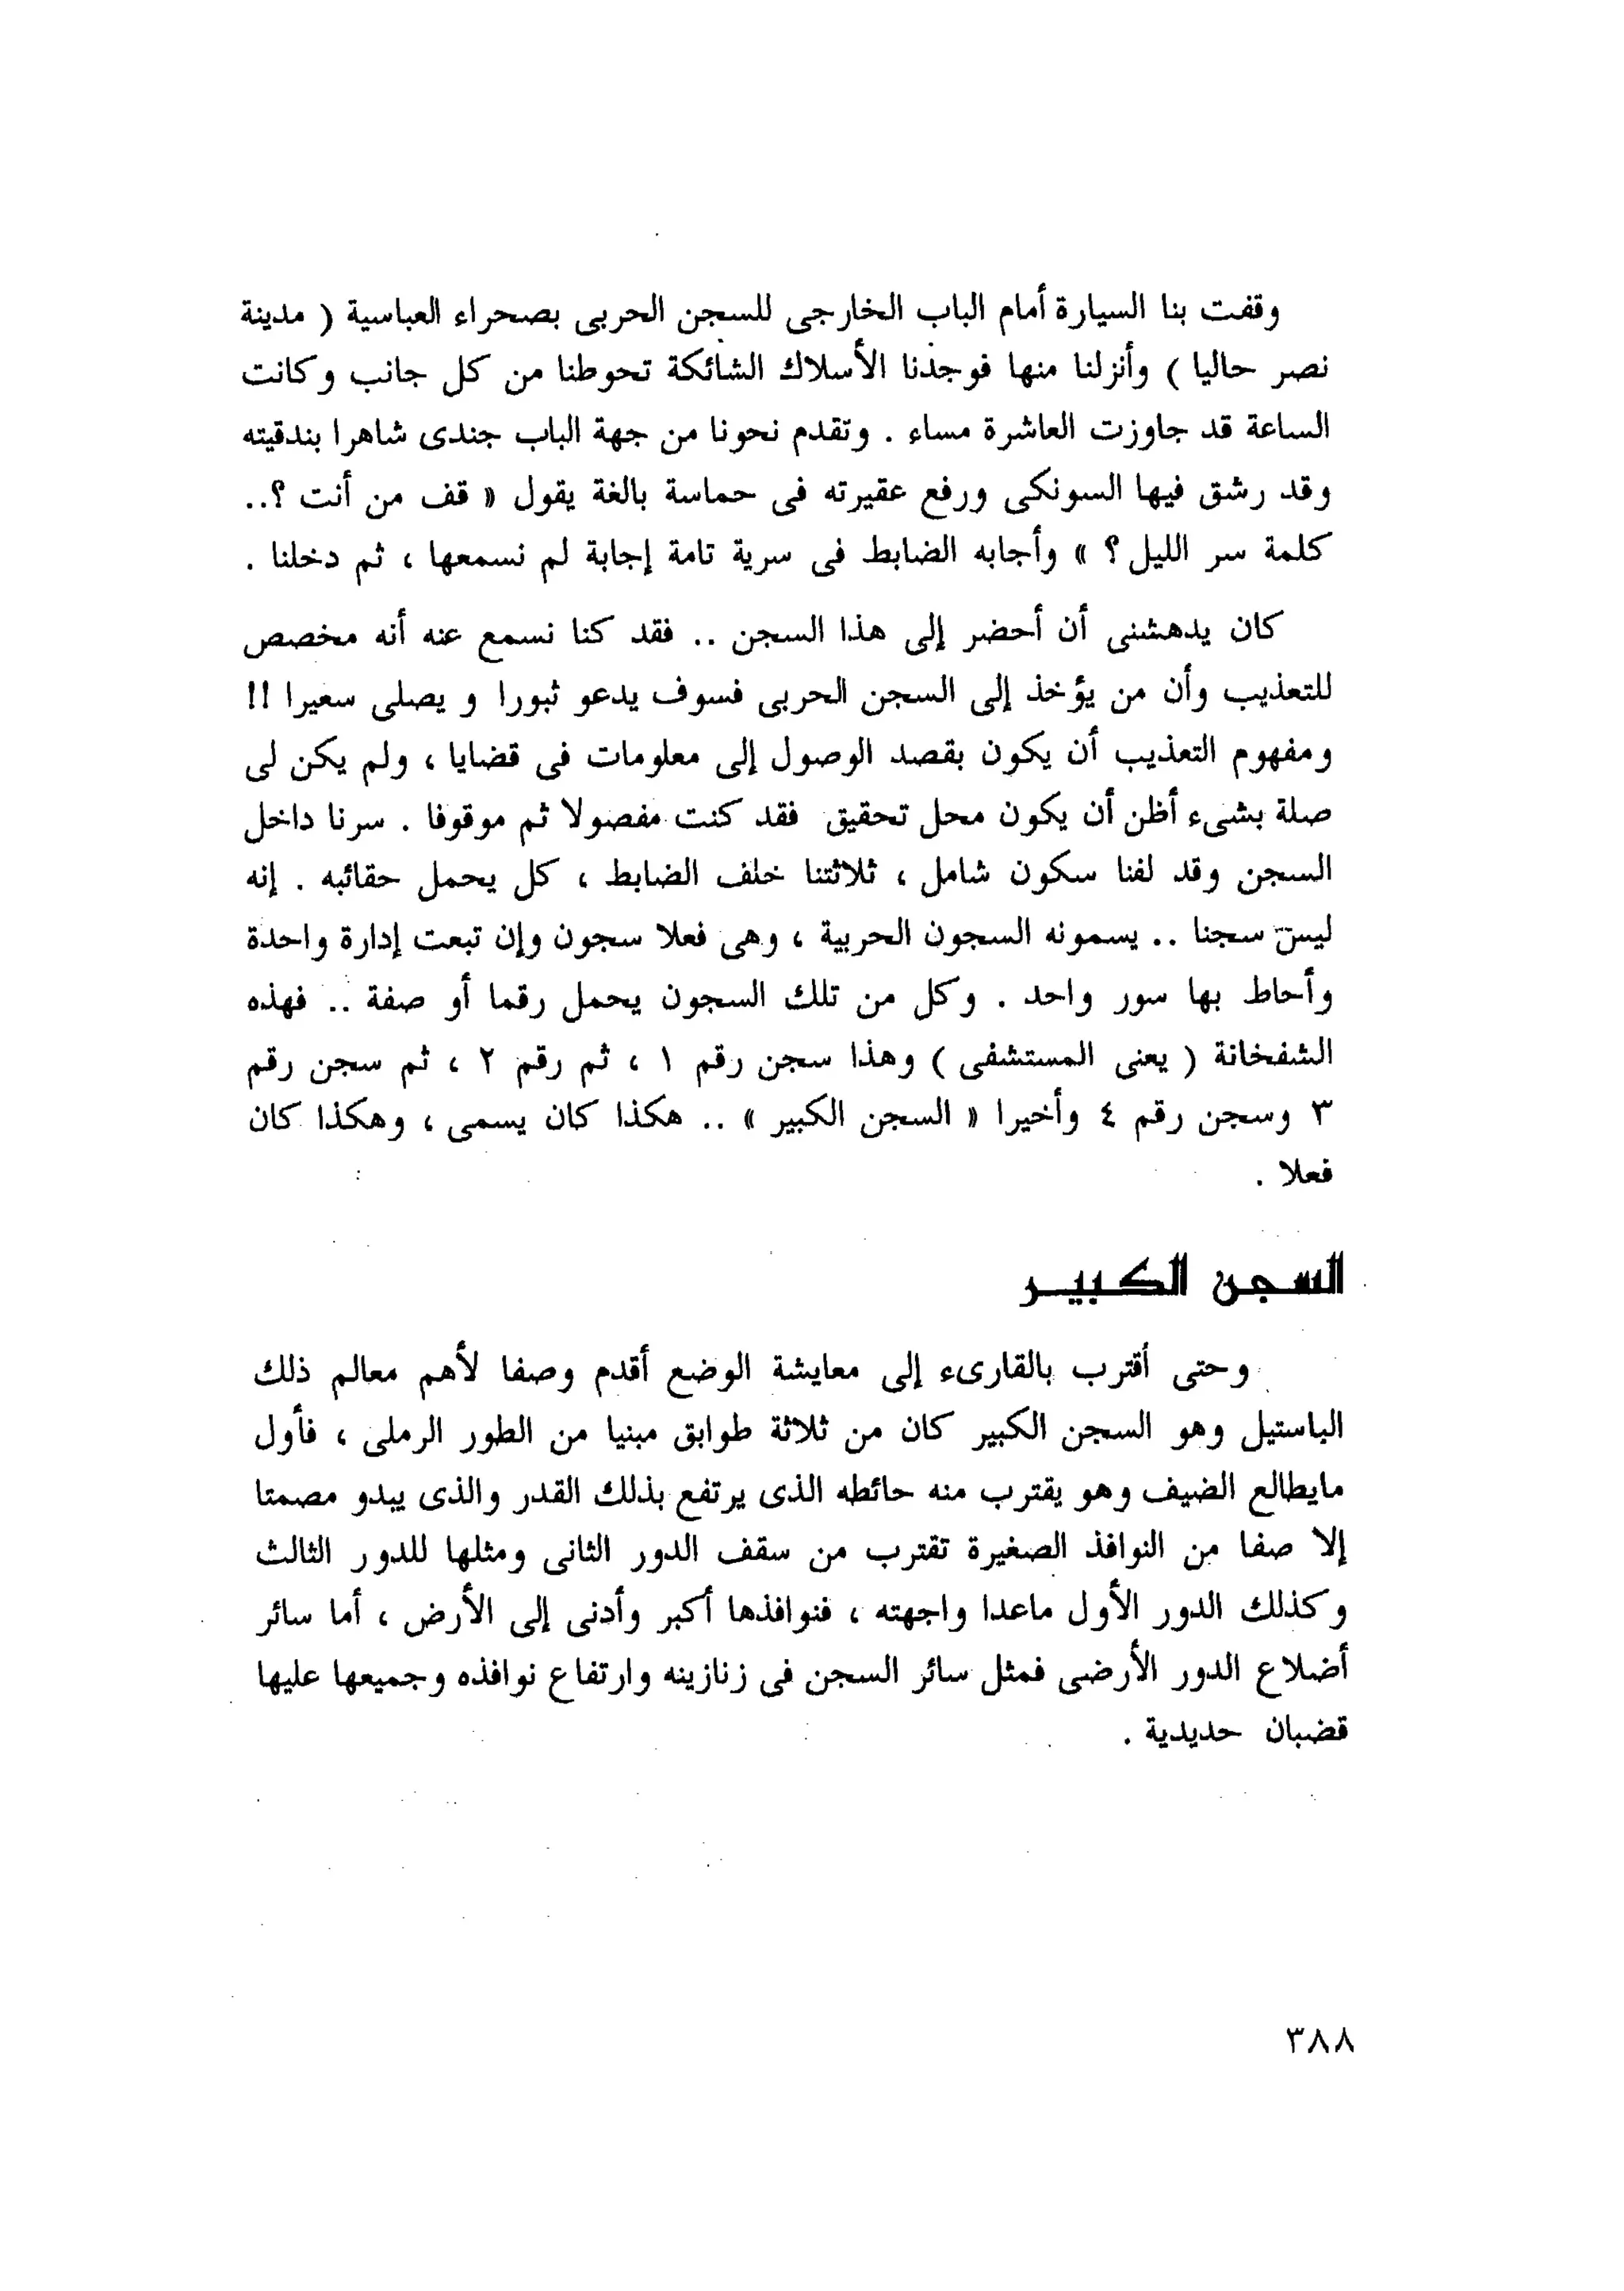 وقفت بنا السيارة أمام الباب الخارجى للسجن الحربى بصحراء العباسية ( مدينة
نصر حاليا ) وأنزلنا منها فوجدنا الأسلاك الشائكة تحوطنا من كل جانب وكانت
الساعة قد جاوزت العاشرة مساء . وتقدم نحونا من جهة الباب جندى شاهرا بندقيته
وقد رشق فيها السونكى ورفع عقيرته فى حماسة بالغة يقول « قف من أنت ؟..
كلمة سر الليل ؟ » وأجابه الضابط فى سرية تامة إجابة لم نسمعها ، ثم دخلنا .
كان يدهشنى أن أحضر إلى هذا السجن .. فقد كنا نسمع عنه أنه مخصص
للتعذيب وأن من يؤخذ إلى السجن الحربى فسوف يدعو ثبورا و يصلى سعيرا !!
ومفهوم التعذيب أن يكون بقصد الوصول إلى معلومات فى قضايا ، ولم يكن لى
صلة بشىء أظن أن يكون محل تحقيق فقد كنت مفصولا ثم موقوفا . سرنا داخل
السجن وقد لفنا سكون شامل ، ثلاثتنا خلف الضابط ، كل يحمل حقائبه . إنه
ليس سجنا .. يسمونه السجون الحربية ، وهى فعلا سجون وإن تبعت إدارة واحدة
وأحاط بها سور واحد . وكل من تلك السجون يحمل رقما أو صفة .. فهذه
الشفخانة ( يعنى المستشفى ) وهذا سجن رقم ١ ، ثم رقم ٢ ، ثم سجن رقم
٣ وسجن رقم ٤ وأخيرا « السجن الكبير » .. هكذا كان يسمى ، وهكذا كان
فعلا .
السجن الكبيـر
وحتى أقترب بالقارىء إلى معايشة الوضع أقدم وصفا لأهم معالم ذلك
الباستيل وهو السجن الكبير كان من ثلاثة طوابق مبنيا من الطور الرملى ، فأول
مايطالع الضيف وهو يقترب منه حائطه الذى يرتفع بذلك القدر والذى يبدو مصمتا
إلا صفا من النوافذ الصغيرة تقترب من سقف الدور الثانى ومثلها للدور الثالث
وكذلك الدور الأول ماعدا واجهته ، فنوافذها أكبر وأدنى إلى الأرض ، أما سائر
أضلاع الدور الأرضى فمثل سائر السجن فى زنازينه وارتفاع نوافذه وجميعها عليها
قضبان حديدية .
٣٨٨